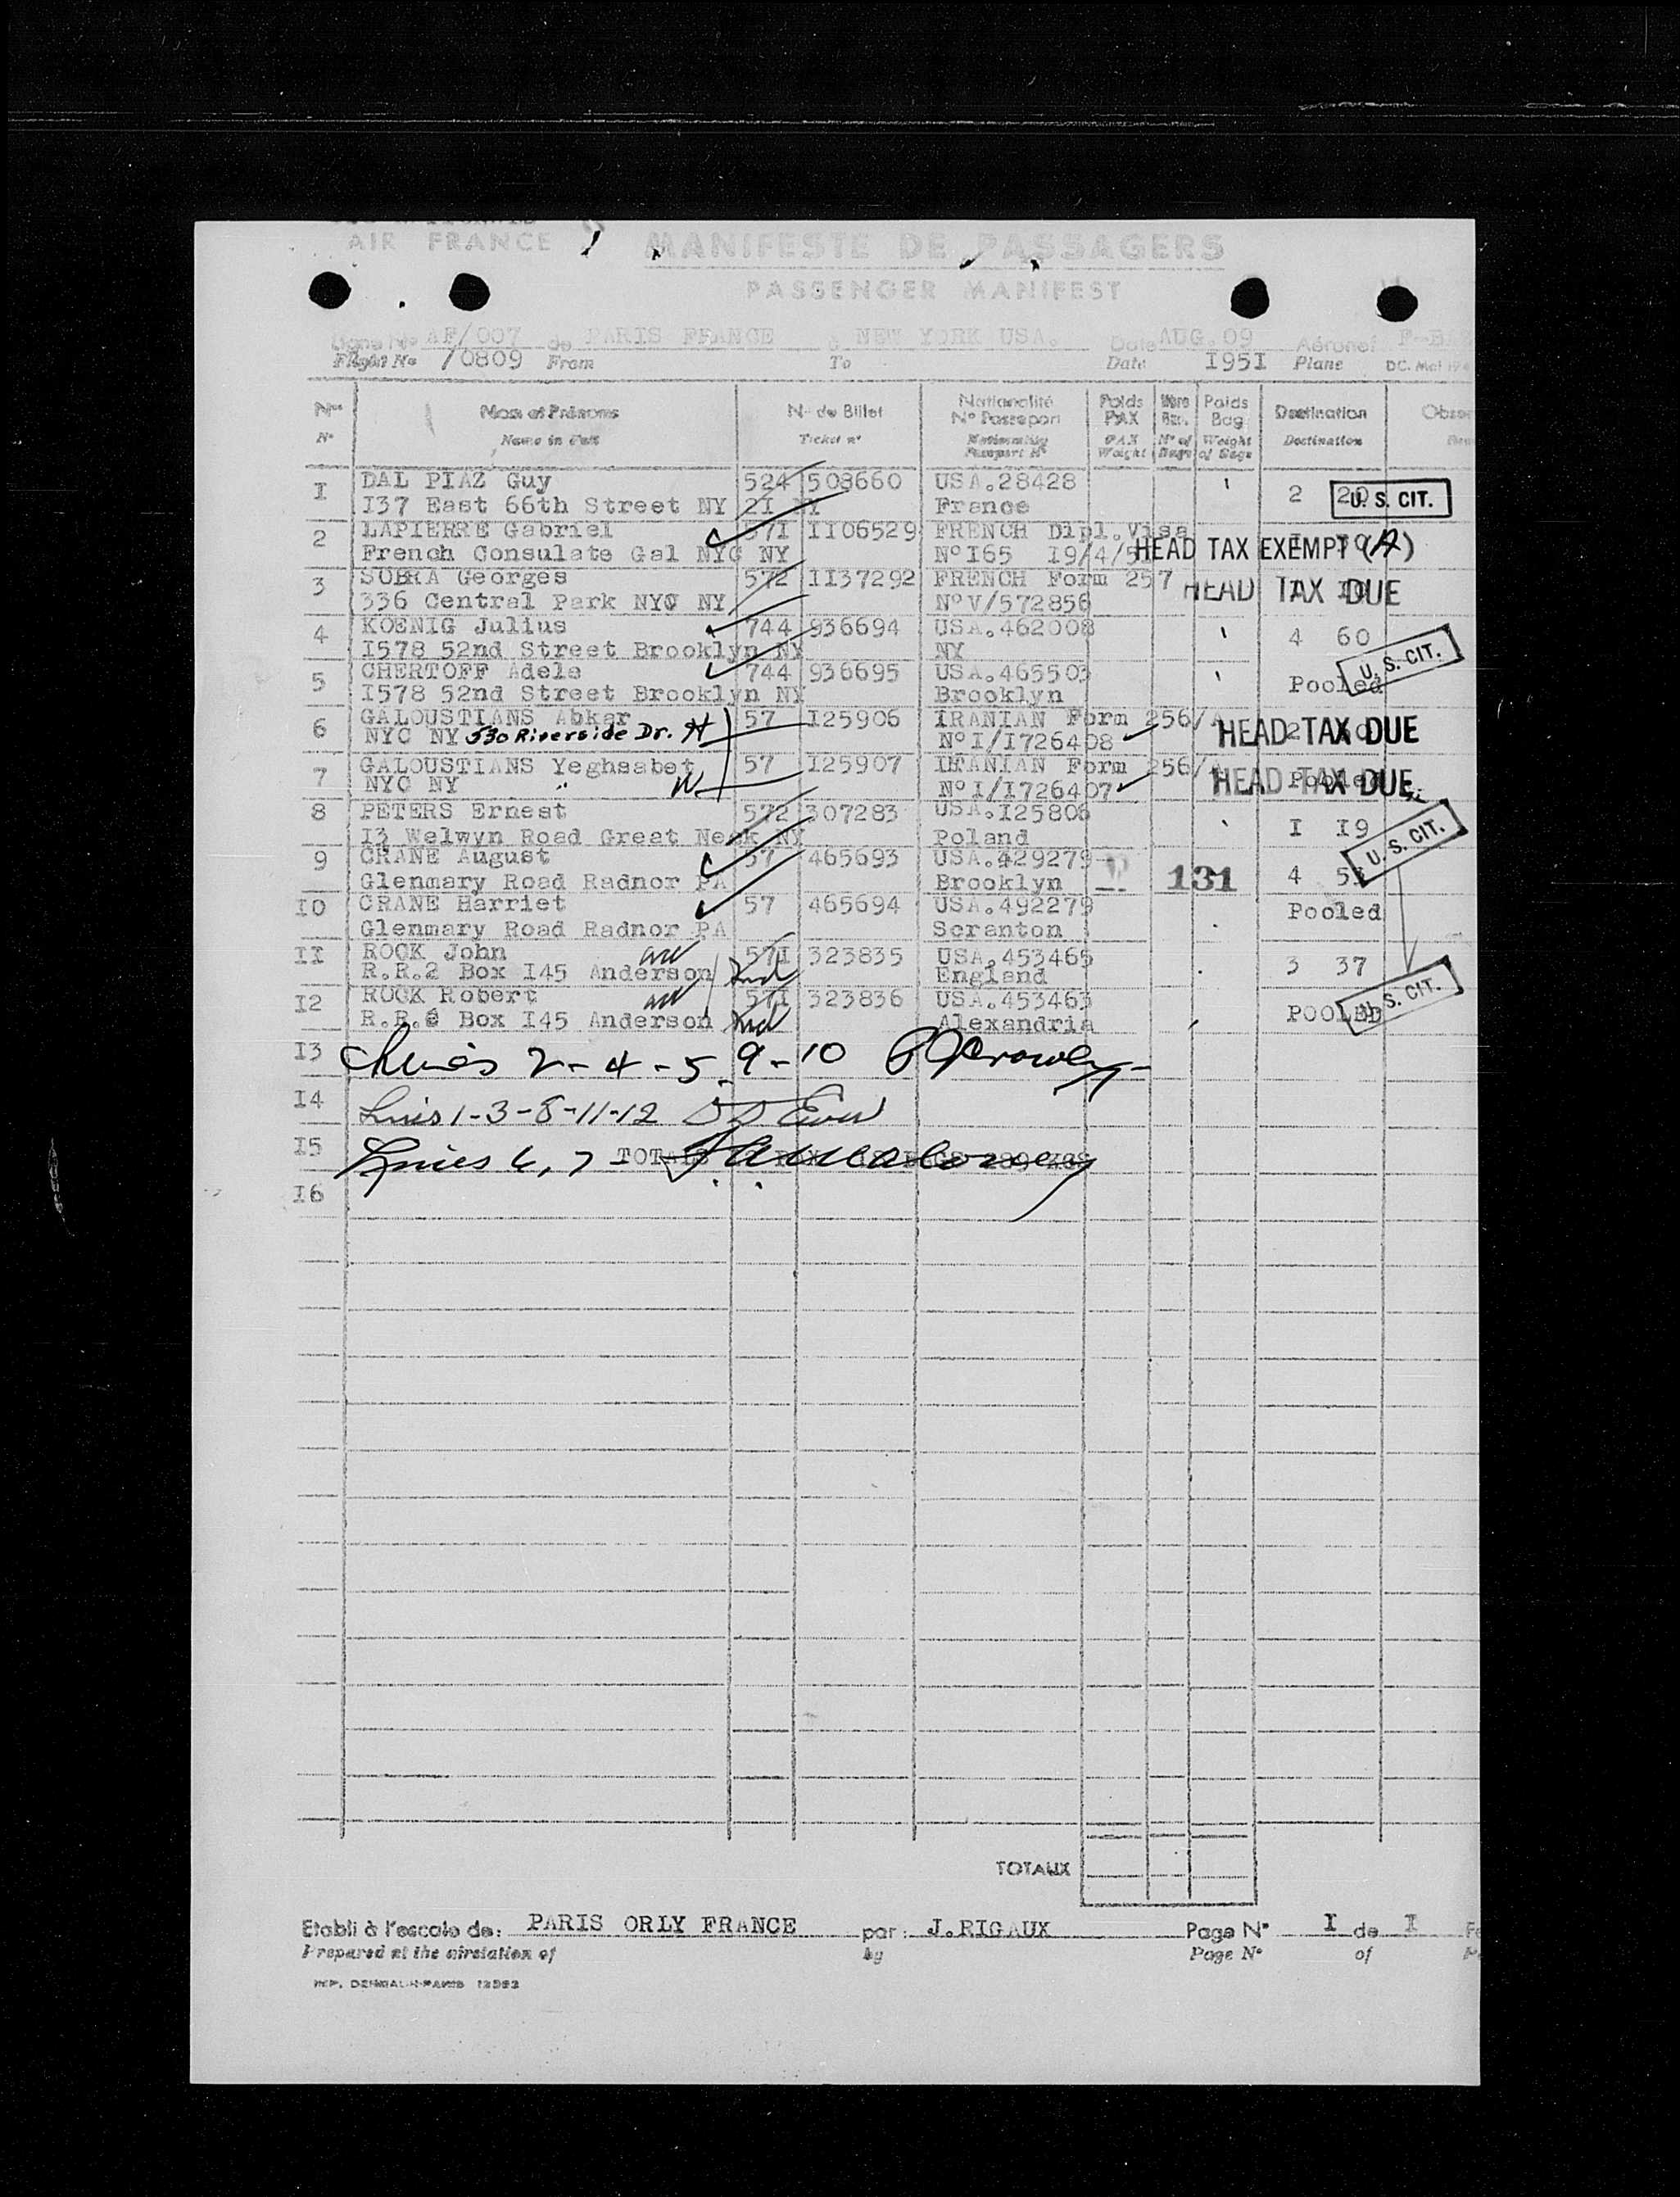 AIR FRANCE
MANIFESTE DE PASSAGERS
PASSENGER MANIFEST
Ligne No AF/007 de PARIS FRANCE à NEW YORK USA. Date AUG. 09 Aéronef
Flight No /0809 From To Date I95I Plane
Nos Nom et Prénoms No de Billet Nationalité No Passeport Poids PAX Nbre Bag. Poids Bag Destination
No Name in Full Ticket no Nationality Passport No PAX Weight No of Bags Weight of Bags Destination
I DAL PIAZ Guy 524 508660 USA.28428 2 20 U.S. CIT.
I37 East 66th Street NY 2I NY France
2 LAPIERRE Gabriel 57I II06529 FRENCH Dipl.Visa
French Consulate Gal NYC NY No I65 I9/4/5I HEAD TAX EXEMPT (A)
3 SUBRA Georges 572 II37292 FRENCH Form 257 HEAD TAX DUE
336 Central Park NYC NY No V/572856
4 KOENIG Julius 744 936694 USA.462008 4 60
I578 52nd Street Brooklyn NY NY U.S. CIT.
5 CHERTOFF Adele 744 936695 USA.465503 Pooled
I578 52nd Street Brooklyn NY Brooklyn
6 GALOUSTIANS Abkar 57 I25906 IRANIAN Form 256/A HEAD TAX DUE
NYC NY 530 Riverside Dr. H No I/I726408
7 GALOUSTIANS Yeghsabet 57 I25907 IRANIAN Form 256/A Pooled HEAD TAX DUE
NYC NY " W No I/I726407
8 PETERS Ernest 572 307283 USA.I25806 I I9
I3 Welwyn Road Great Neck NY Poland U.S. CIT.
9 CRANE August 57 465693 USA.429279 131 4 53
Glenmary Road Radnor PA Brooklyn
I0 CRANE Harriet 57 465694 USA.492279 Pooled
Glenmary Road Radnor PA Scranton
II ROCK John 57I 323835 USA.453465 3 37
R.R.2 Box I45 Anderson Ind England
I2 ROCK Robert 57I 323836 USA.453463 POOLED U.S. CIT.
R.R. Box I45 Anderson Ind Alexandria
I3 Lines 2-4-5-9-10
I4 Lines 1-3-8-11-12
I5 Lines 6, 7
I6
TOTAUX
Etabli à l'escale de: PARIS ORLY FRANCE par: J.RIGAUX Page No I de I
Prepared at the airstation of by Page No of